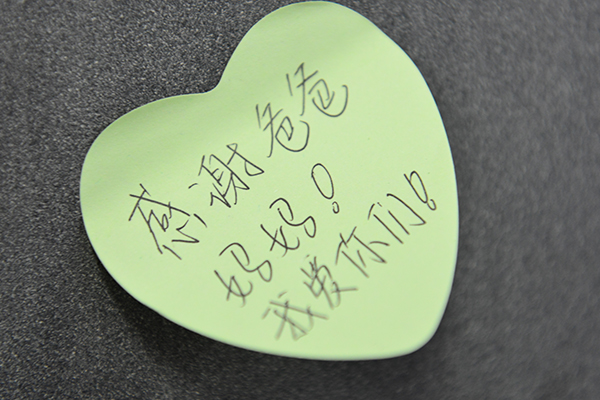 感谢爸爸
妈妈!
我爱你们!